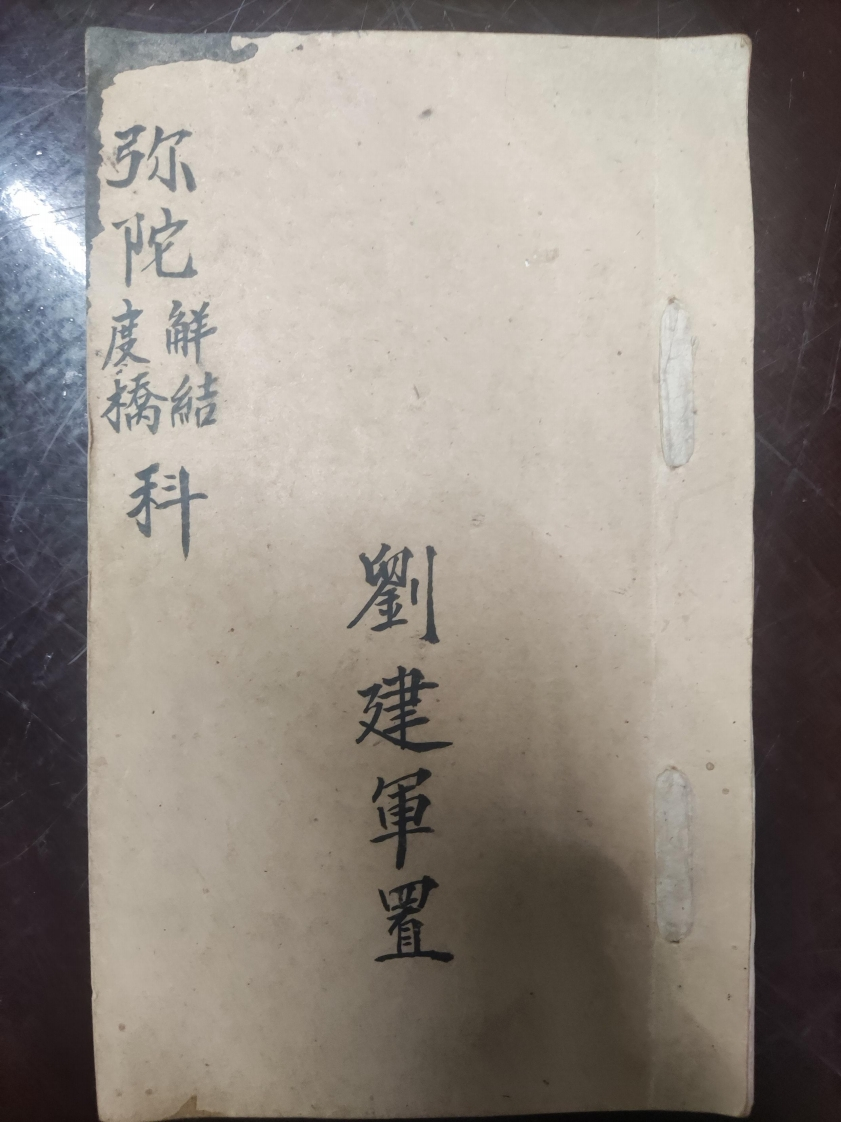 弥陀解結度橋科
劉建軍置